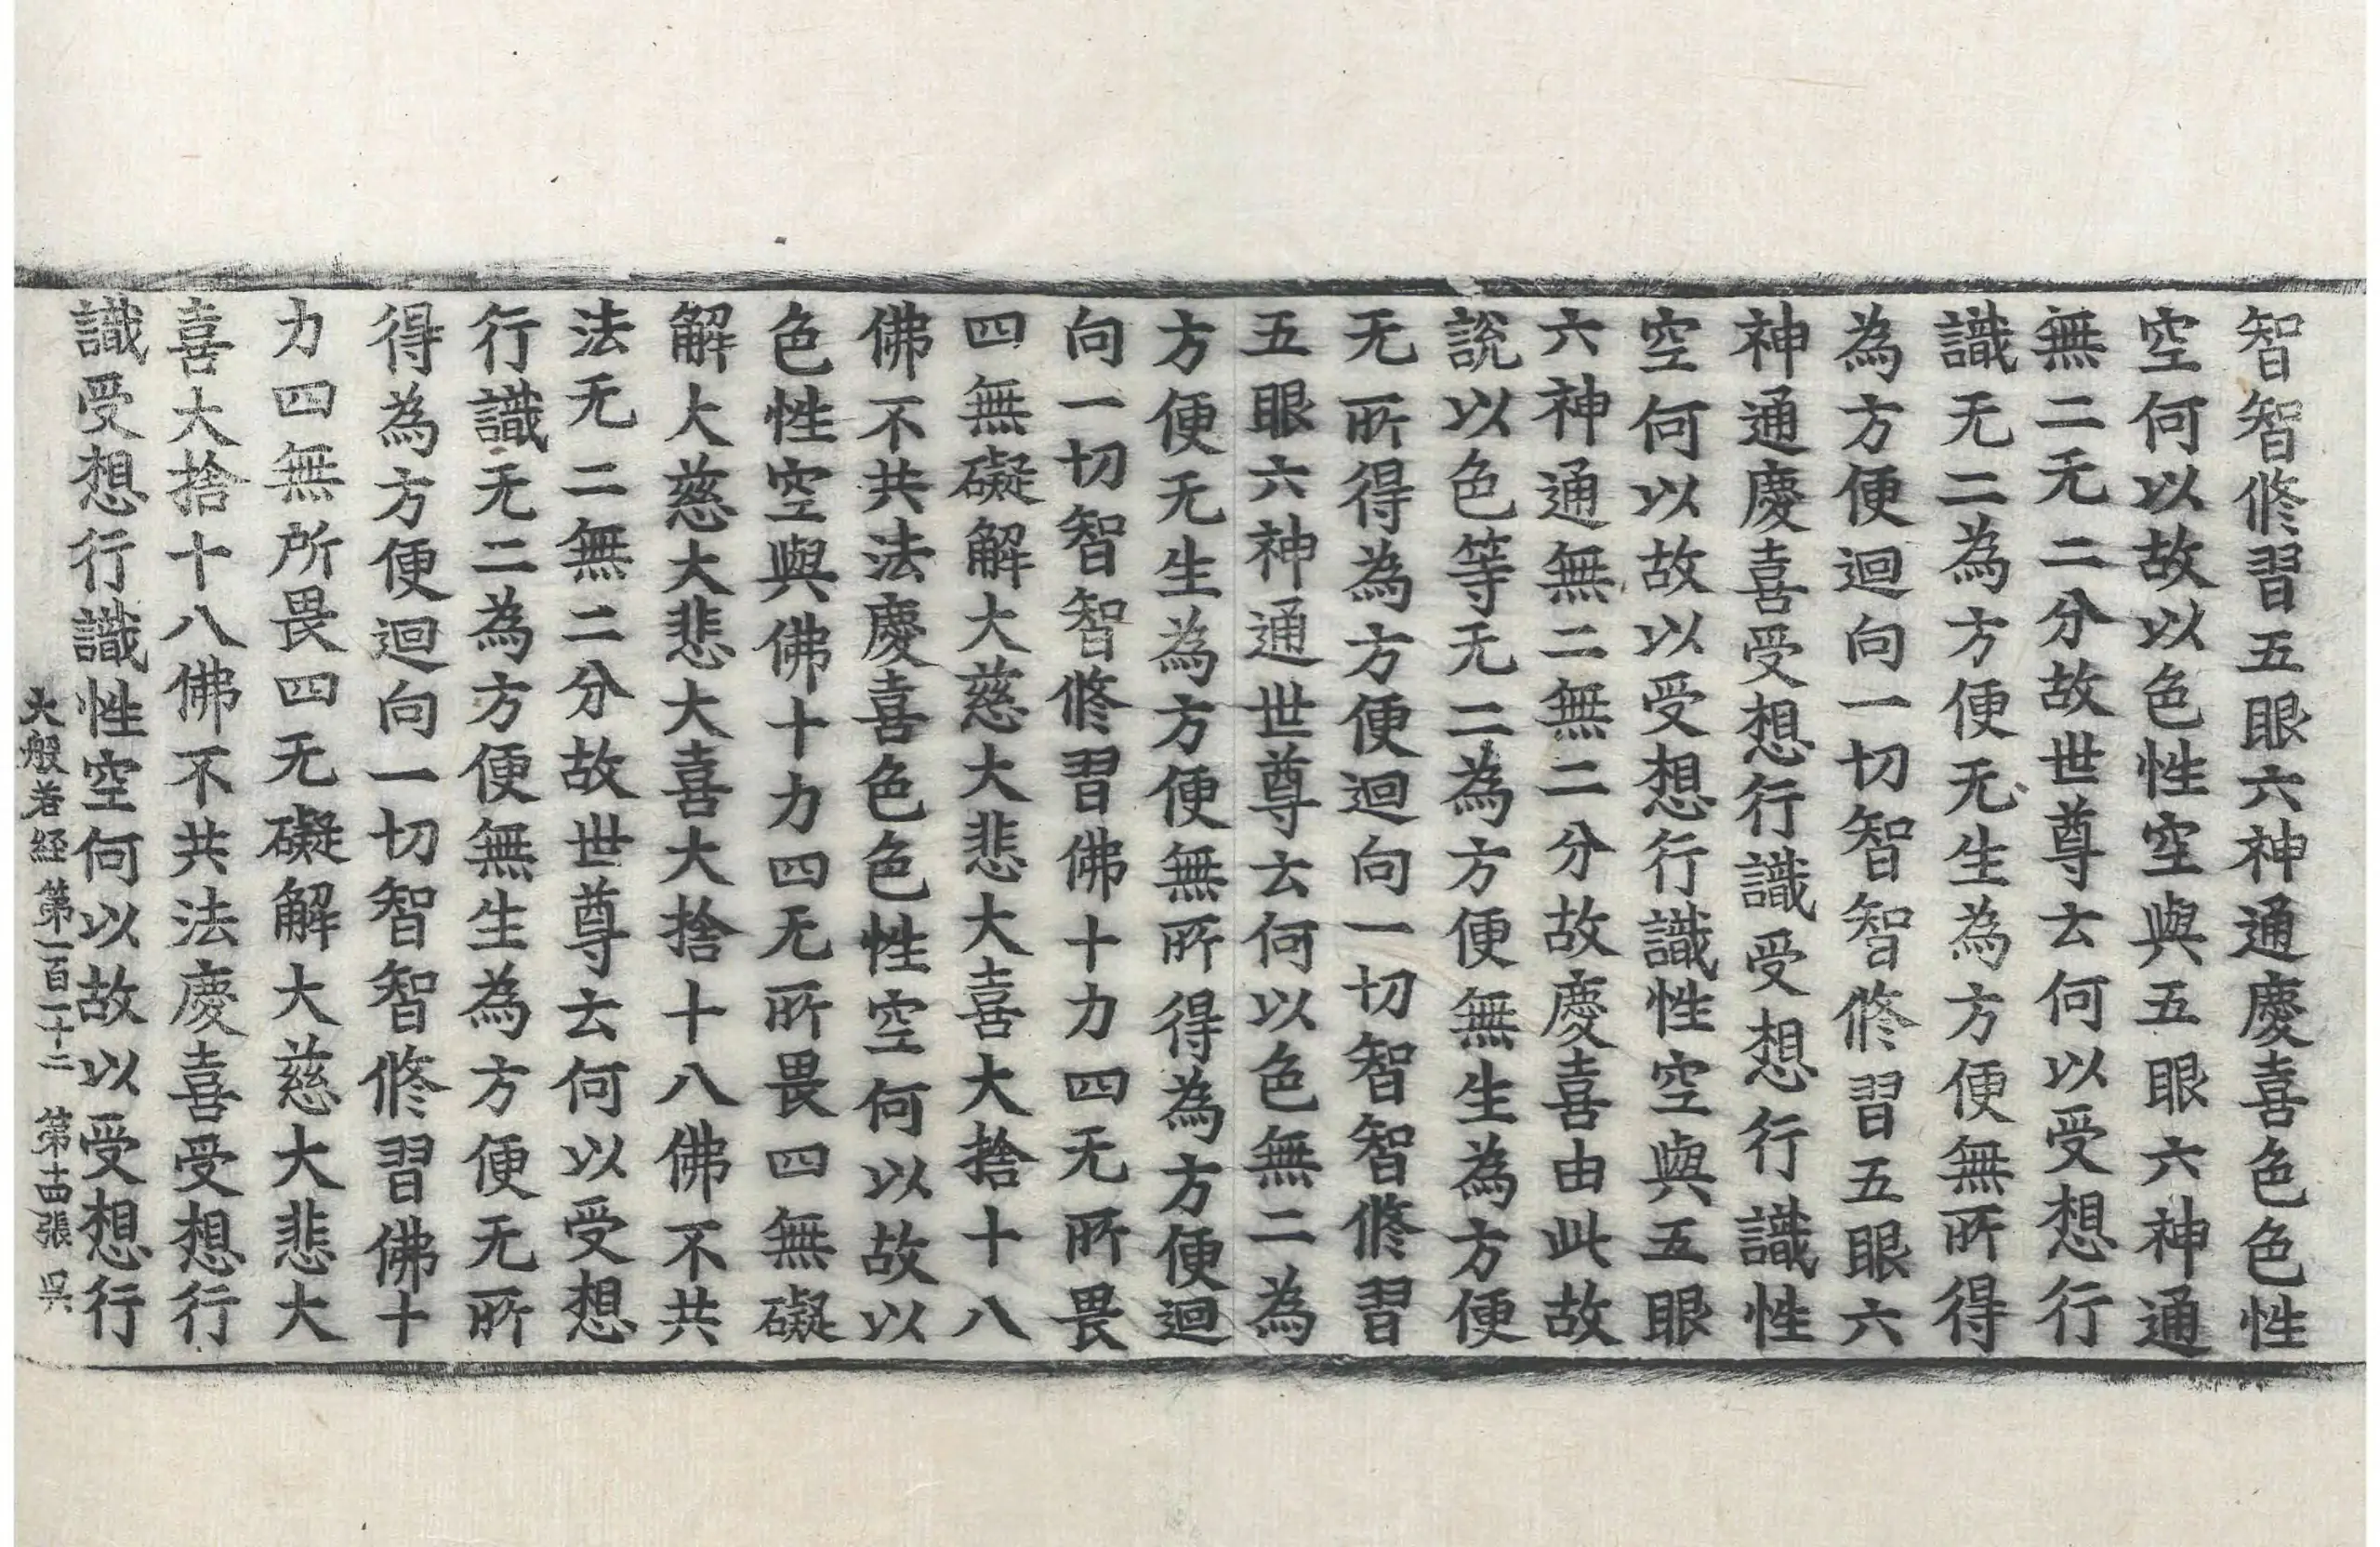 智智修習五眼六神通慶喜色色性
空何以故以色性空與五眼六神通
無二无二分故世尊云何以受想行
識无二為方便无生為方便無所得
為方便迴向一切智智修習五眼六
神通慶喜受想行識受想行識性
空何以故以受想行識性空與五眼
六神通無二無二分故慶喜由此故
說以色等无二為方便無生為方便
无所得為方便迴向一切智智修習
五眼六神通世尊云何以色無二為
方便无生為方便無所得為方便迴
向一切智智修習佛十力四无所畏
四無礙解大慈大悲大喜大捨十八
佛不共法慶喜色色性空何以故以
色性空與佛十力四无所畏四無礙
解大慈大悲大喜大捨十八佛不共
法无二無二分故世尊云何以受想
行識无二為方便無生為方便无所
得為方便迴向一切智智修習佛十
力四無所畏四无礙解大慈大悲大
喜大捨十八佛不共法慶喜受想行
識受想行識性空何以故以受想行
大般若経第一百一十二 第十四張 呉